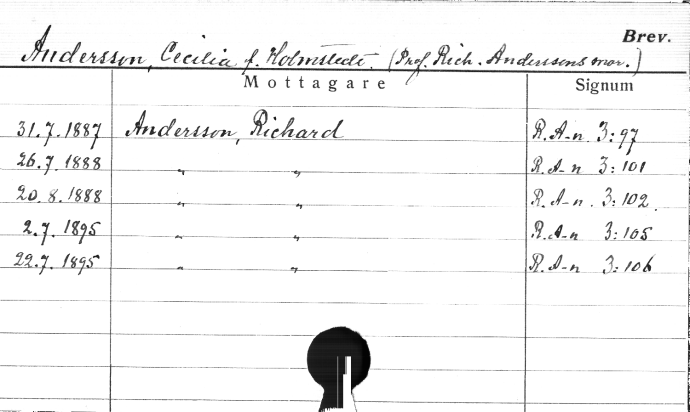 Brev.
Andersson, Cecilia f. Holmstedt. (Prof. Rich. Anderssons mor.)
Mottagare Signum
31.7.1887 Andersson, Richard R.A-n. 3:97
26.7.1888 " " R.A-n 3:101
20.8.1888 " " R.A-n. 3:102.
2.7.1895 " " R.A-n 3:105
22.7.1895 " " R.A-n 3:106